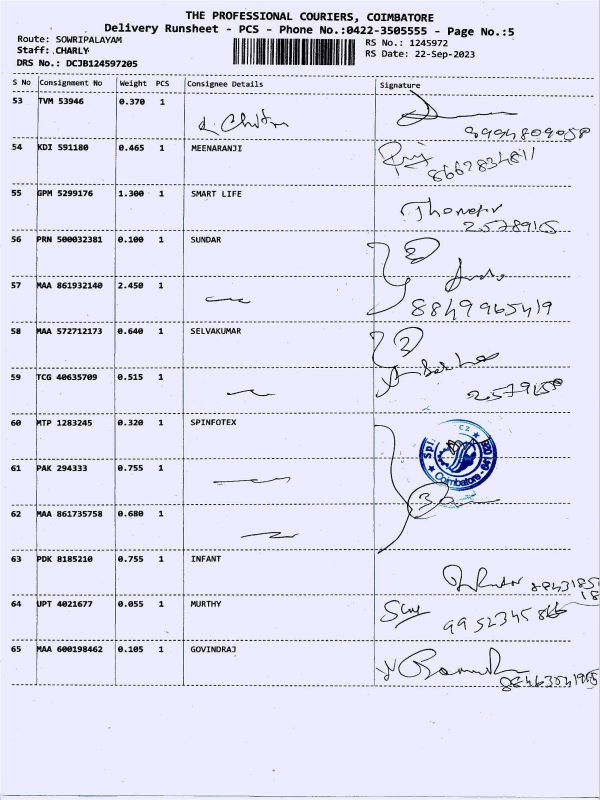 THE PROFESSIONAL COURIERS, COIMBATORE
Delivery Runsheet - PCS - Phone No.:0422-3505555 - Page No.:5
Route: SOWRIPALAYAM
RS No.: 1245972
Staff: CHARLY
RS Date: 22-Sep-2023
DRS No.: DCJB124597205
S No Consignment No Weight PCS Consignee Details Signature
53 TVM 53946 0.370 1
54 KDI 591180 0.465 1 MEENARANJI
8667834811
55 GPM 5299176 1.300 1 SMART LIFE
56 PRN 500032381 0.100 1 SUNDAR 2
57 MAA 861932140 2.450 1
8849965419
58 MAA 572712173 0.640 1 SELVAKUMAR 2
59 TCG 40635709 0.515 1
60 MTP 1283245 0.320 1 SPINFOTEX
Coimbatore - 641
61 PAK 294333 0.755 1
62 MAA 861735758 0.680 1 3
63 PDK 8185210 0.755 1 INFANT
64 UPT 4021677 0.055 1 MURTHY
65 MAA 600198462 0.105 1 GOVINDRAJ